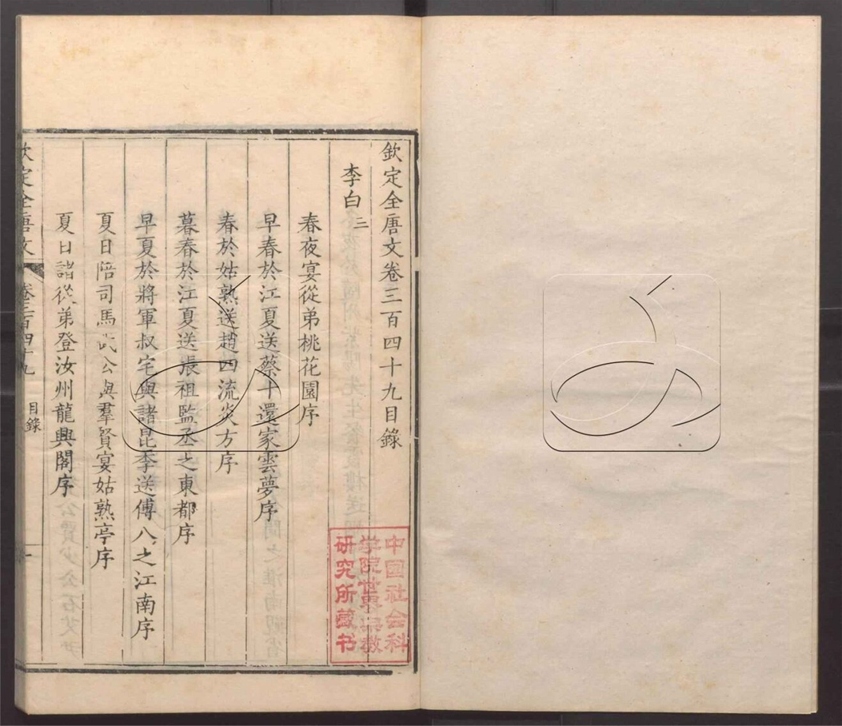 欽定全唐文卷三百四十九目錄
李白 三
春夜宴從弟桃花園序
早春於江夏送蔡十還家雲夢序
春於姑熟送趙四流炎方序
暮春於江夏送張祖監丞之東都序
早夏於將軍叔宅與諸昆季送傅八之江南序
夏日陪司馬武公與羣賢宴姑熟亭序
夏日諸從弟登汝州龍興閣序
欽定全唐文 卷三百四十九 目錄 一
中国社会科
学院世界宗教
研究所藏书